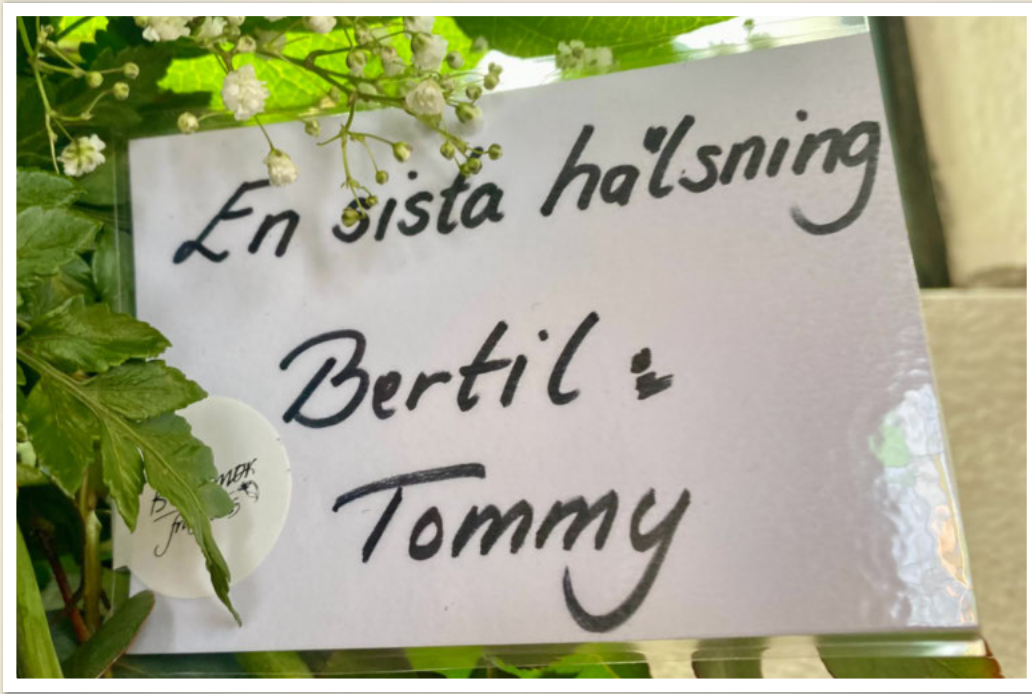 En sista hälsning
Bertil &
Tommy